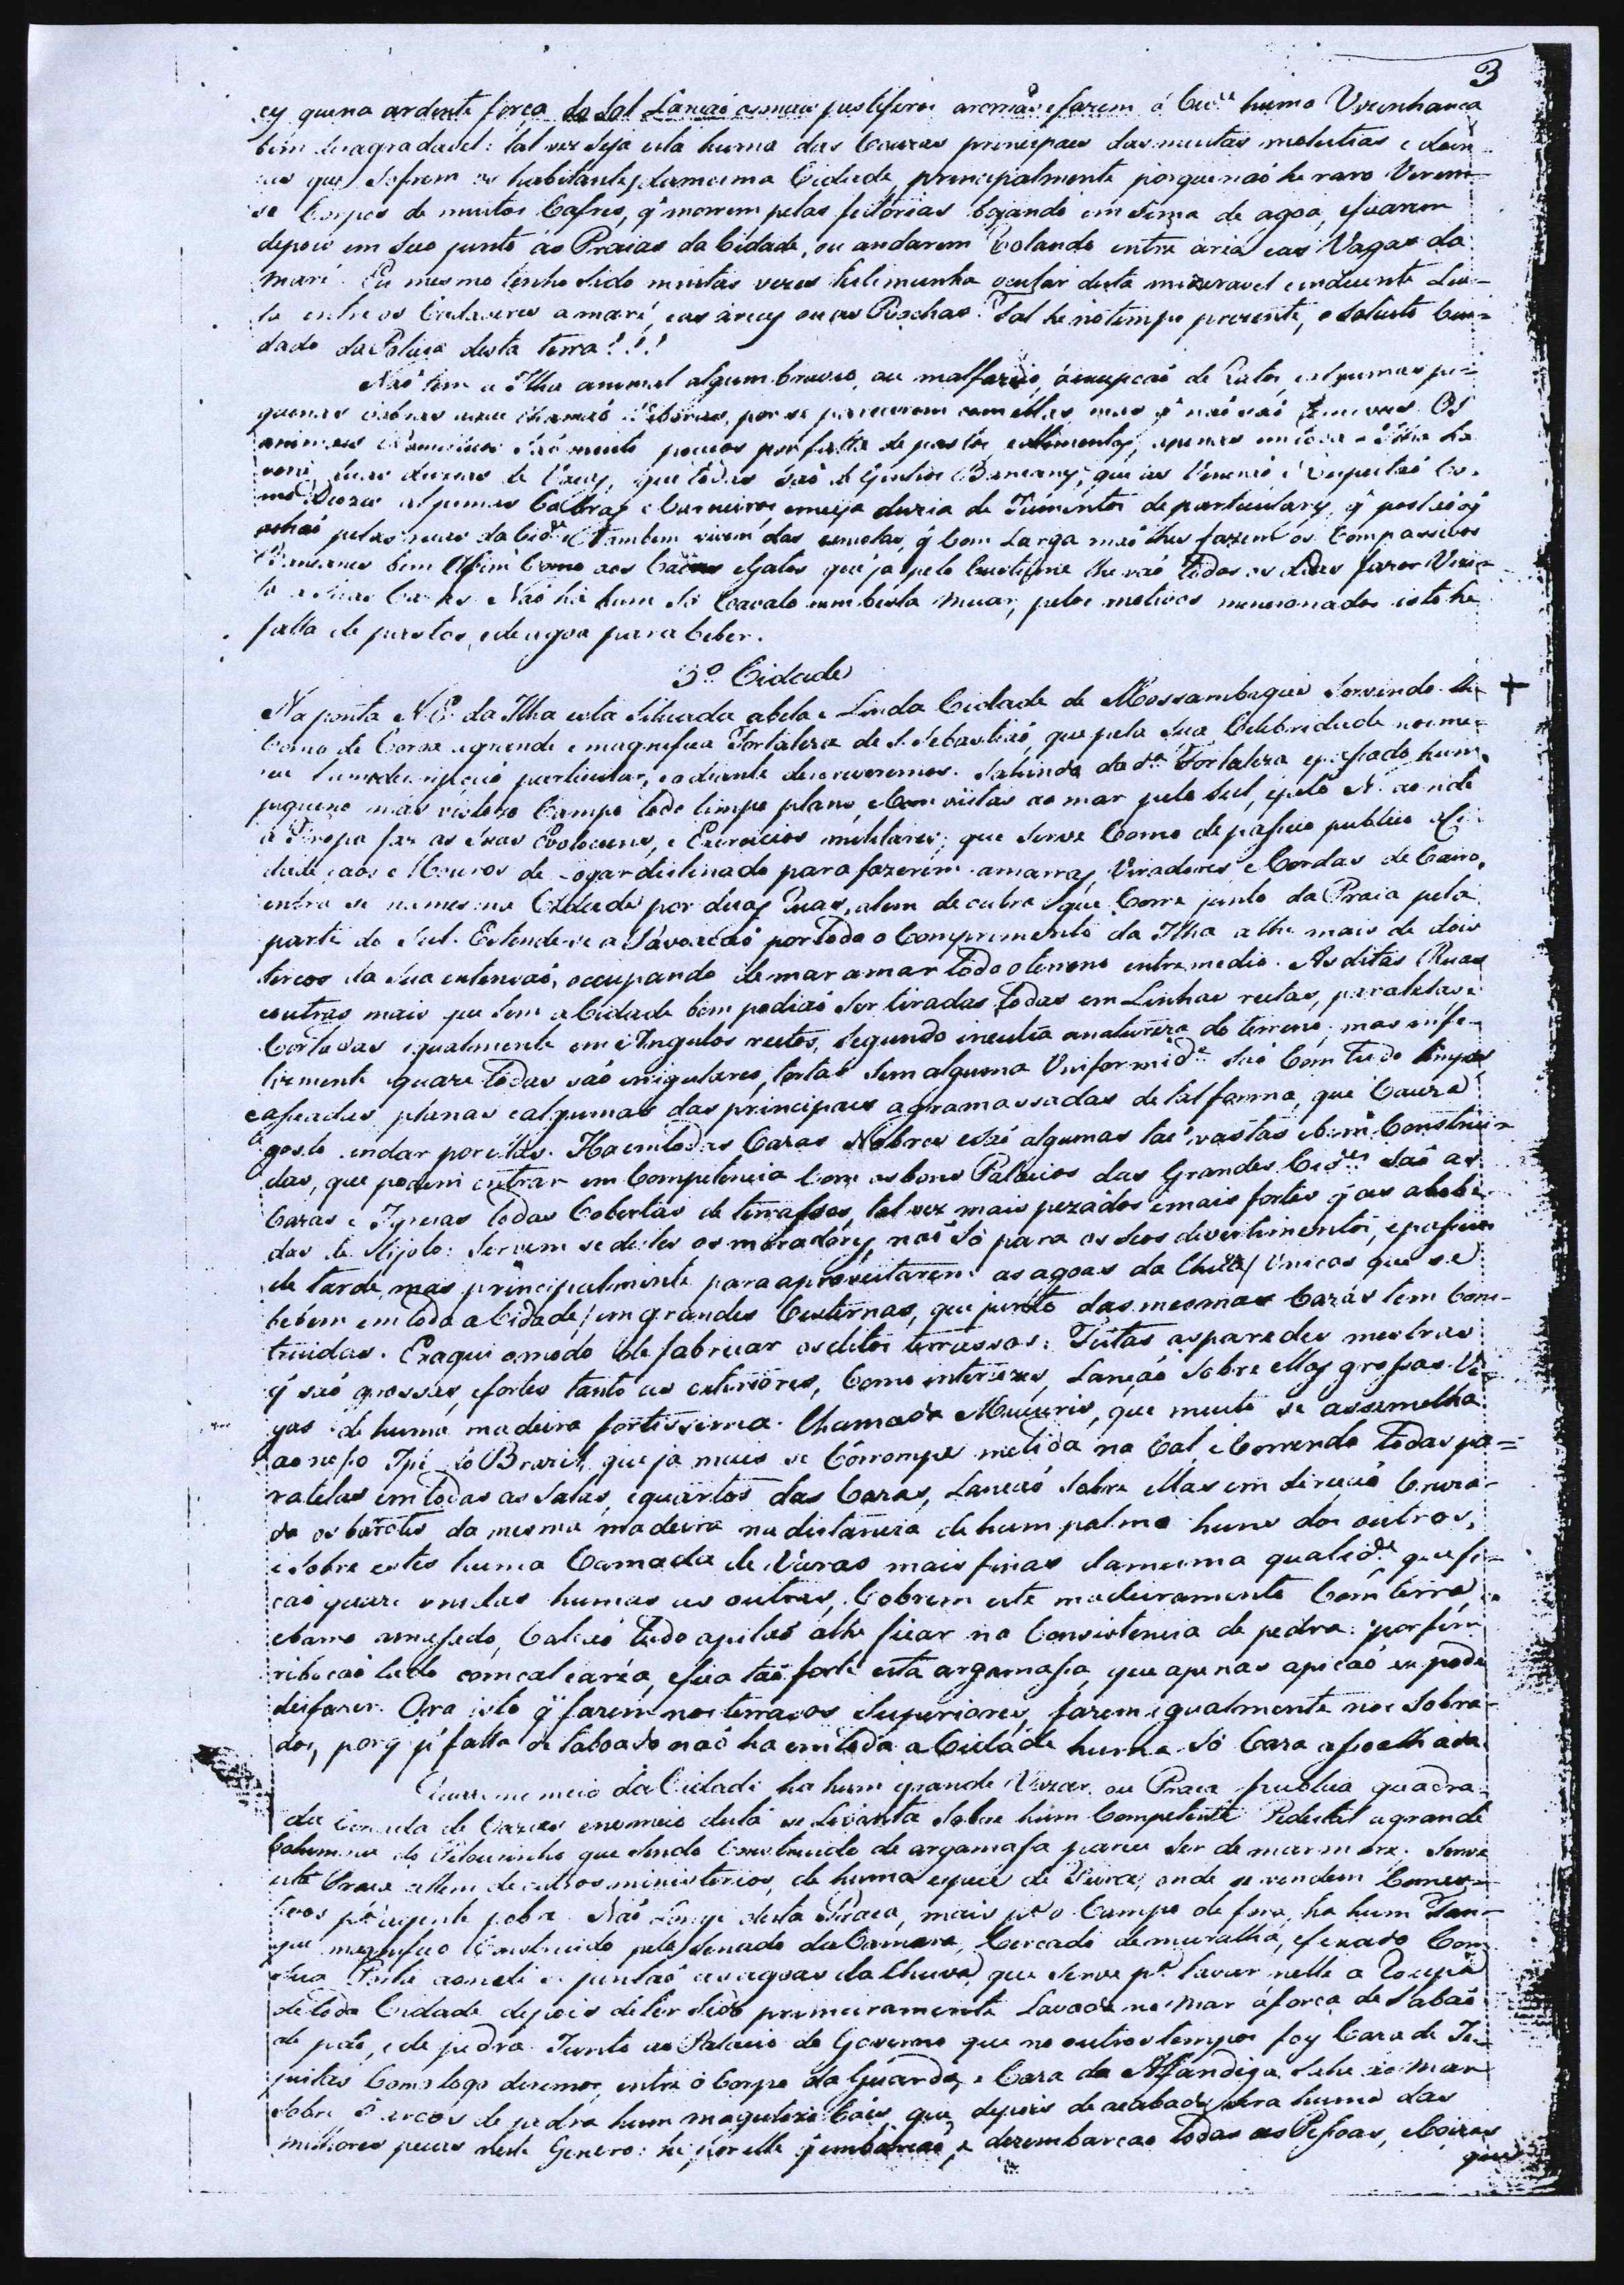 3
ey que na ardente força do Sol Lançaõ os mais pestiferos aromas e fazem á Cid.e huma Vezinhança
bem desagradavel: tal vez seja esta huma das Cauzas principaes das muitas molestias e doen-
ças que Sofrem os habitantes da mesma Cidade, principalmente porque naõ he raro Verem-
se Corpos de muitos Cafres, q̃ morrem pelas feitorias boiando em sima de agoa, e ficarem
depois em Seco junto ás Praias da Cidade, ou andarem Rolando entre aria e as Vagas da
maré. Eu mesmo tenho sido muitas vezes testimunha ocular desta mizeravel e indecente Lu-
ta entre os Cadaveres a maré, e as areas ou as Rochas. Tal he no tempo prezente, o Soluto Cui-
dado da Policia desta terra!!!
Naõ tem a Ilha animal algum bravio, ou malfazejo, á excepçaõ de Ratos, e algumas pe-
quenas cobras que chamaõ Viboras, por se parecerem com ellas, mas q̃ naõ saõ Os
animais saõ muito poucos por falta de pastos, e alimentos, apenas em toda a Ilha ha-
verá duas duzias de Vacas, que todas saõ de Gentios Baneanes, que as Veneraõ e Respeitaõ Co-
mo Deozes algumas Cabras e Carneiros e meya duzia de Jumentos de particulares, q̃
pelas ruas da Cid.e e tambem vivem das esmolas, q̃ Com Larga maõ lhes fazem os Compassivos
Baneanes bem Assim Como aos Caens e Gatos que já pelo Custume lhe vaõ todos os dias fazer Vizi-
ta a suas Cazas Naõ há hum só Cavalo nem besta Muar, pelos motivos mencionados isto he
falta de pastos, e de agoa para beber.
3º Cidade
Na ponta N.E. da Ilha esta Situada a bela e Linda Cidade de Mossambique Servindo-lhe +
Como de Coroa a grande e magnifica Fortaleza de S. Sebastiaõ, que pela Sua Celebridade
particular, e adiante descreveremos. Sahindo da d.a Fortaleza e passado hum
pequeno mas vistozo Campo todo limpo plano, e Com vistas ao mar pelo Sul, e pelo N. aonde
a Tropa faz as Suas Evolucoens, e Exercicios militares; que Serve Como de passeio publico á Ci-
dade, e aos Mouros de logar destinado para fazerem amarras, Viradores e Cordas de Cairo,
entra se na mesma Cidade por duas Ruas, alem de outra que Corre junto da Praia pela
parte do Sul. Estende-se a Povoaçaõ por todo o Comprimento da Ilha athe mais de dois
terços da Sua extensaõ, occupando de mar a mar todo o terreno entremedio. As ditas Ruas
e outras mais que tem a Cidade bem podiaõ Ser tiradas todas em Linhas rectas, paralelas e
Cortadas igualmente em Angulos rectos, Segundo a natureza do terreno, mas infe-
lizmente quaze todas saõ irregulares, tortas Sem alguma Uniformid.e Saõ Com tudo limpas
e aseadas planas e algumas das principaes agramassadas de tal forma, que Cauza
gosto andar por ellas. Ha em todas Cazas Nobres e Saõ algumas taõ vastas e bem Construi-
das, que podem entrar em Competencia Com os bons Palacios das Grandes Cid.es Saõ as
Cazas e Igrejas todas Cobertas de terrassos, tal vez mais pezados e mais fortes q̃ as abobe-
das de tijolo: Servem se delles os moradores, naõ Só para os Seos devertimentos, e passeios
de tarde, mas principalmente para aproveitarem as agoas da Chuva (Unicas que se
bebem em toda a Cidade) em grandes Cisternas, que junto das mesmas Cazas tem Cons-
truidas. Eis aqui o modo de fabricar os ditos terrassos: Feitas as paredes mestras
q̃ saõ grossas, e fortes tanto as exteriores, Como interiores, Lançaõ Sobre ellas grossas Vi-
gas de huma madeira fortissima Chamada Mucuris, que muito se assemelha
ao nosso Ipé do Brazil, que já mais se Corrompe metida na Cal, e Correndo todas pa-
ralelas em todas as Salas, e quartos das Cazas, Lançaõ Sobre ellas em direcçaõ Cruza-
da os barotes da mesma madeira na distancia de hum palmo huns dos outros,
e Sobre estes huma Camada de Varas mais finas da mesma qualid.e que fi-
caõ quaze unidas humas as outras, Cobrem este madeiramento Com terra,
e barro amassado, Calcaõ tudo a pilaõ athe ficar na Consistencia de pedra: por fim
rebocaõ tudo com cal e aréa, e fica taõ forte esta argamassa, que apenas a picaõ se pode
desfazer. Ora isto q̃ fazem nos terraços Superiores, fazem igualmente nos Sobra-
dos, porq̃ p.r falta de taboado naõ ha em toda a Cidade huma Só Caza assoalhada.
Quaze no meio da Cidade ha hum grande Vazar, ou Praça publica quadra-
da Cercada de Cazas e no meio desta se Levanta Sobre hum Competente Pedestal a grande
Columna do Pelourinho que Sendo Construido de argamassa parece Ser de marmore. Serve
esta Praça alem de outros ministerios, de huma especie de Feira, onde se vendem Comes-
tivos p.a a gente pobre. Naõ Longe desta Praça, mais p.a o Campo de fora, ha hum Tan-
que magnifico Construido pelo Senado da Camara, Cercado de muralha, e fexado Com
Sua Porta aonde se juntaõ as agoas da Chuva, que Serve p.a lavar nelle a Roupa
de toda Cidade depois de ter Sido primeiramente Lavada no mar á força de Sabaõ
de páo, e de pedra. Junto ao Palacio do Governo que no outros tempos foy Caza de Je-
zuitas Como logo diremos, entre o Corpo da Guarda e Caza da Alfandiga Sahe ao mar
Sobre 8 arcos de pedra hum magestozo Caes, que depois de acabado Sera huma das
milhores peças neste Genero: hé por elle q̃ embarcaõ, e dezembarcaõ todas as Pessoas, e Coizas
que